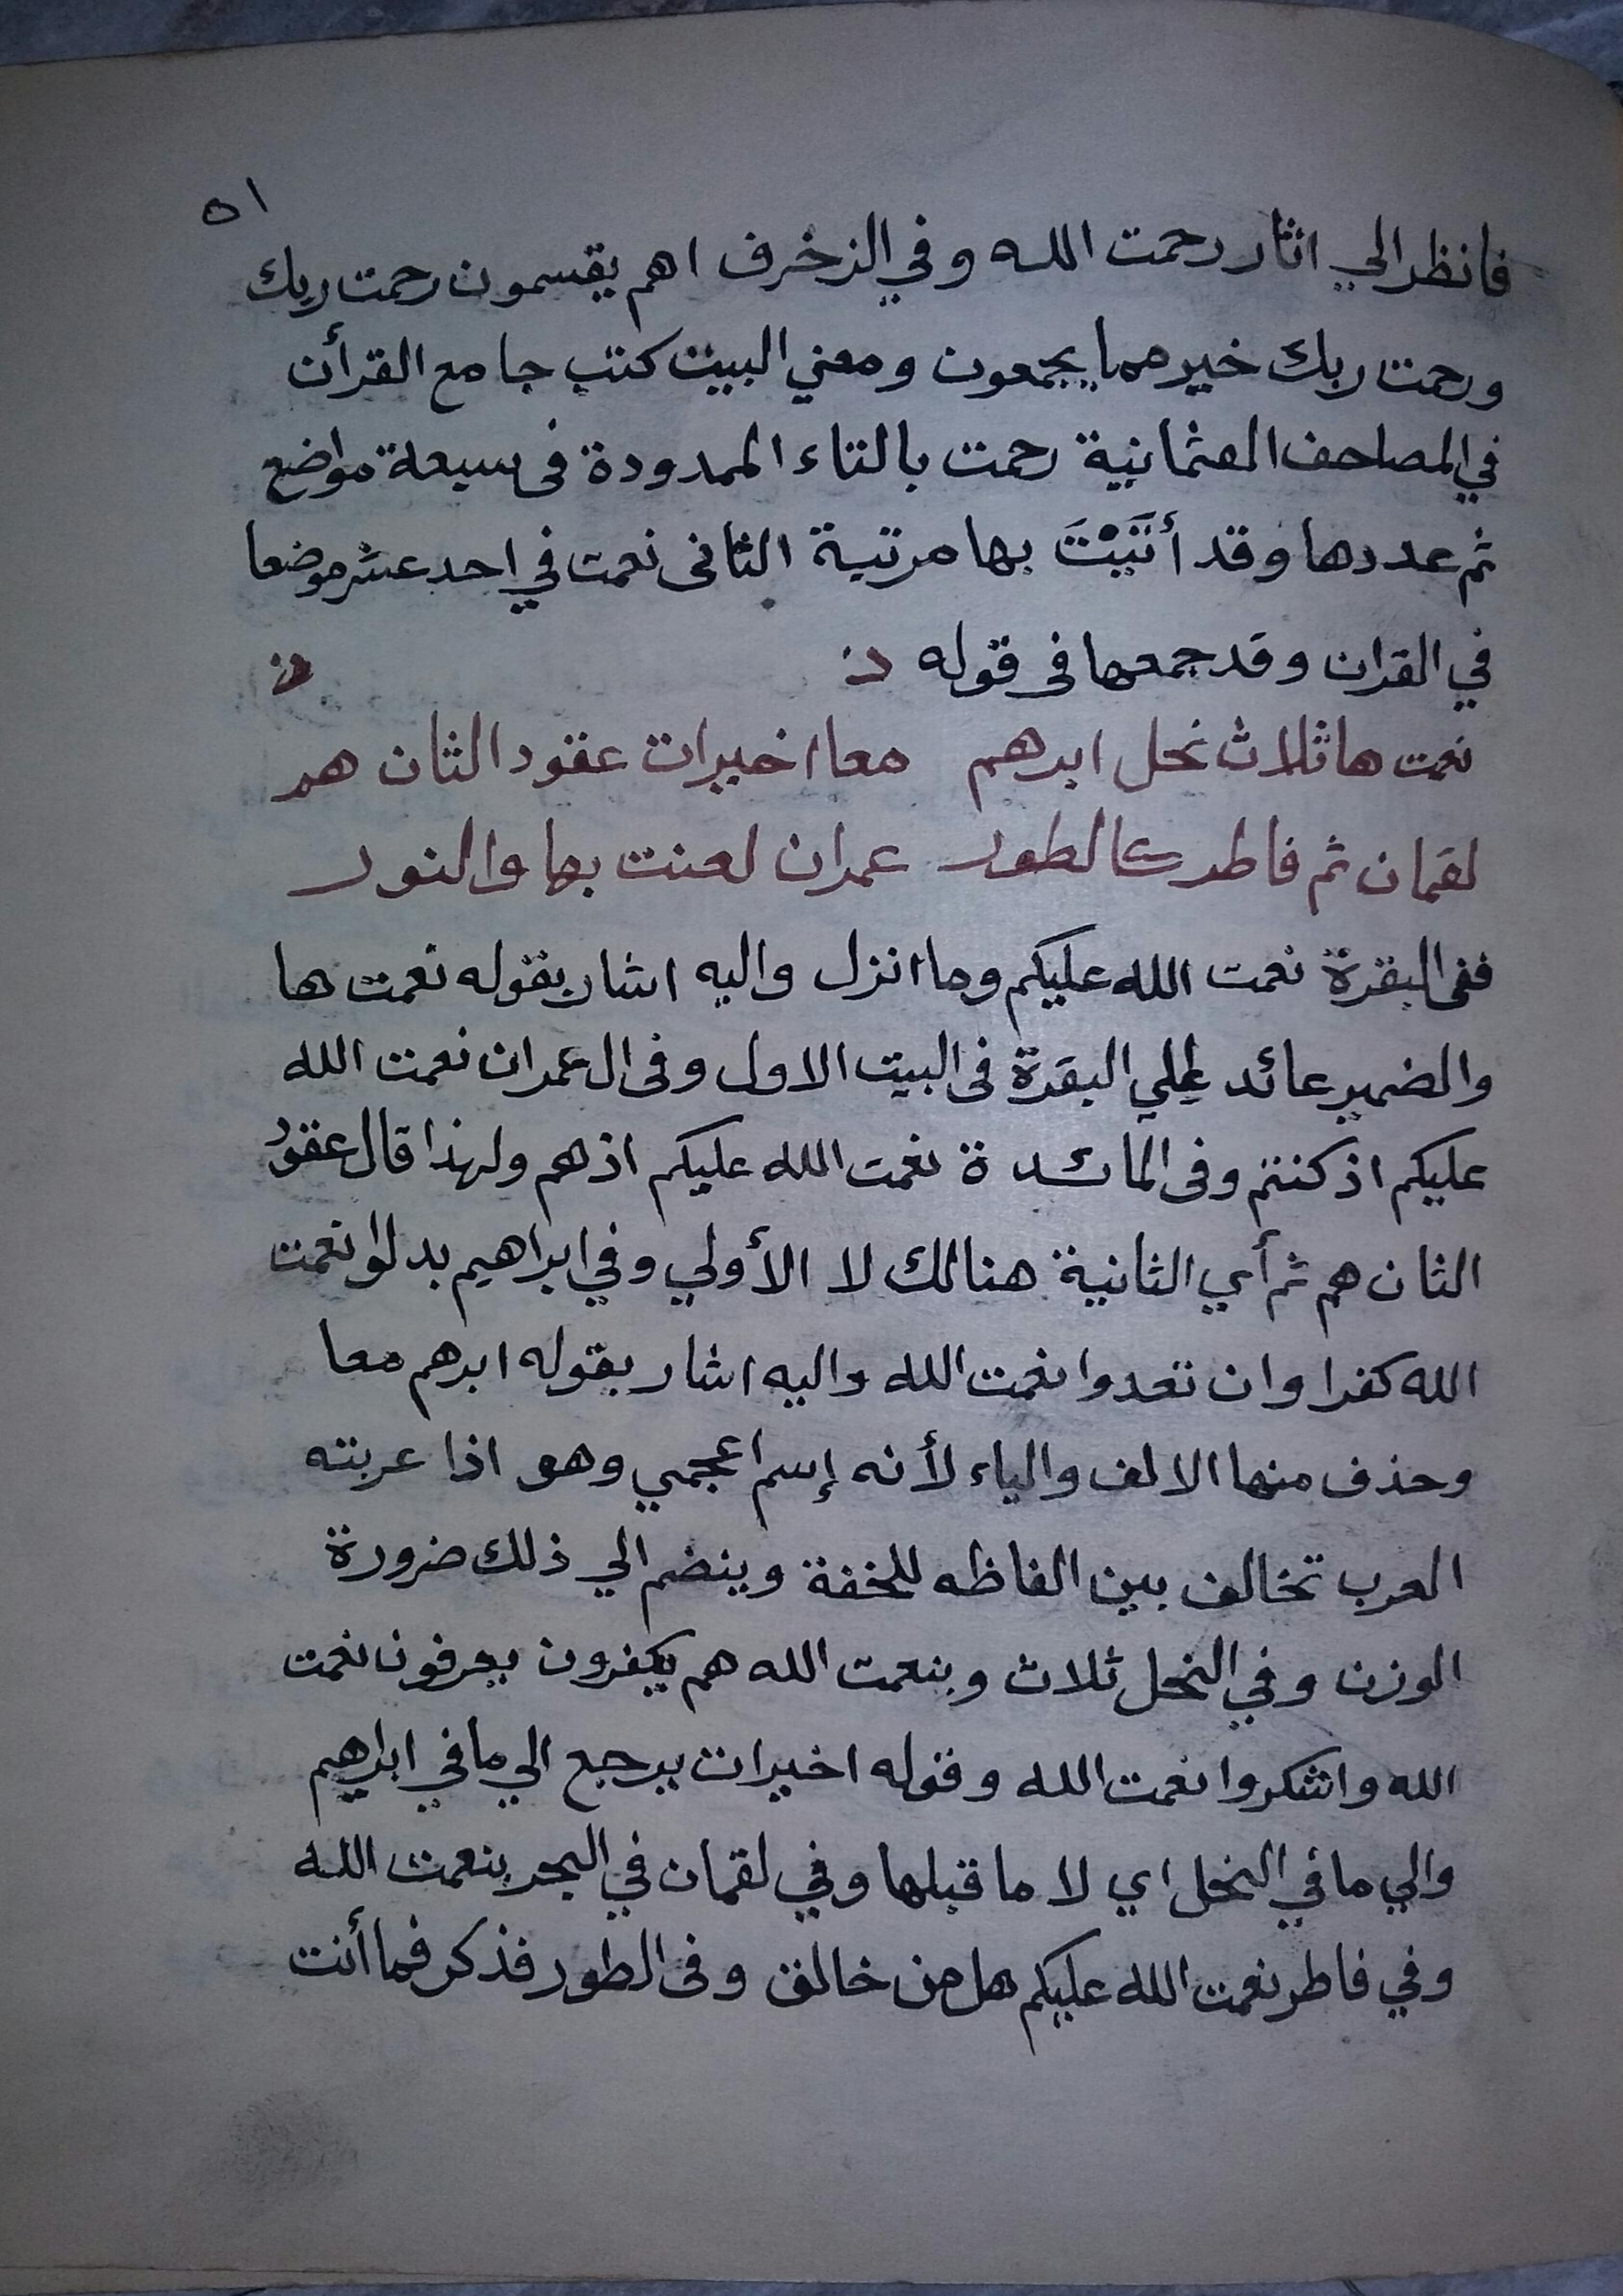 ٥١
فانظر الي اثار رحمت الله وفي الزخرف اهم يقسمون رحمت ربك
ورحمت ربك خير مما يجمعون ومعني البيت كتب جامع القرأن
في المصاحف العثمانية رحمت بالتاء الممدودة فى سبعة مواضع
ثم عددها وقد أتَيْتَ بها مرتبة الثانى نعمت في احد عشر موضعا
في القران وقد جمعها فى قوله
نعمت ها ثلاث نحل ابرهم معا اخيرات عقود الثان هم
لقمان ثم فاطر كالطور عمران لعنت بها والنور
ففى البقرة نعمت الله عليكم وما انزل واليه اشار بقوله نعمت ها
والضمير عائد علي البقرة فى البيت الاول وفى ال عمران نعمت الله
عليكم اذ كنتم وفى المائدة نعمت الله عليكم اذ هم ولهذا قال عقودُ
الثان هم ثم أي الثانية هنالك لا الأولي وفي ابراهيم بدلوا نعمت
الله كفرا وان تعدوا نعمت الله واليه اشار بقوله ابرهم معا
وحذف منها الالف والياء لأنه إسم اعجمي وهو اذا عربته
العرب تخالف بين الفاظه للخفة وينضم الي ذلك ضرورة
الوزن وفي النحل ثلاث وبنعمت الله هم يكفرون يعرفون نعمت
الله واشكروا نعمت الله وقوله اخيرات يرجع الي ما في ابراهيم
والي ما في النحل اي لا ما قبلها وفي لقمان في البحر بنعمت الله
وفي فاطر نعمت الله عليكم هل من خالق وفى الطور فذكر فما أنت